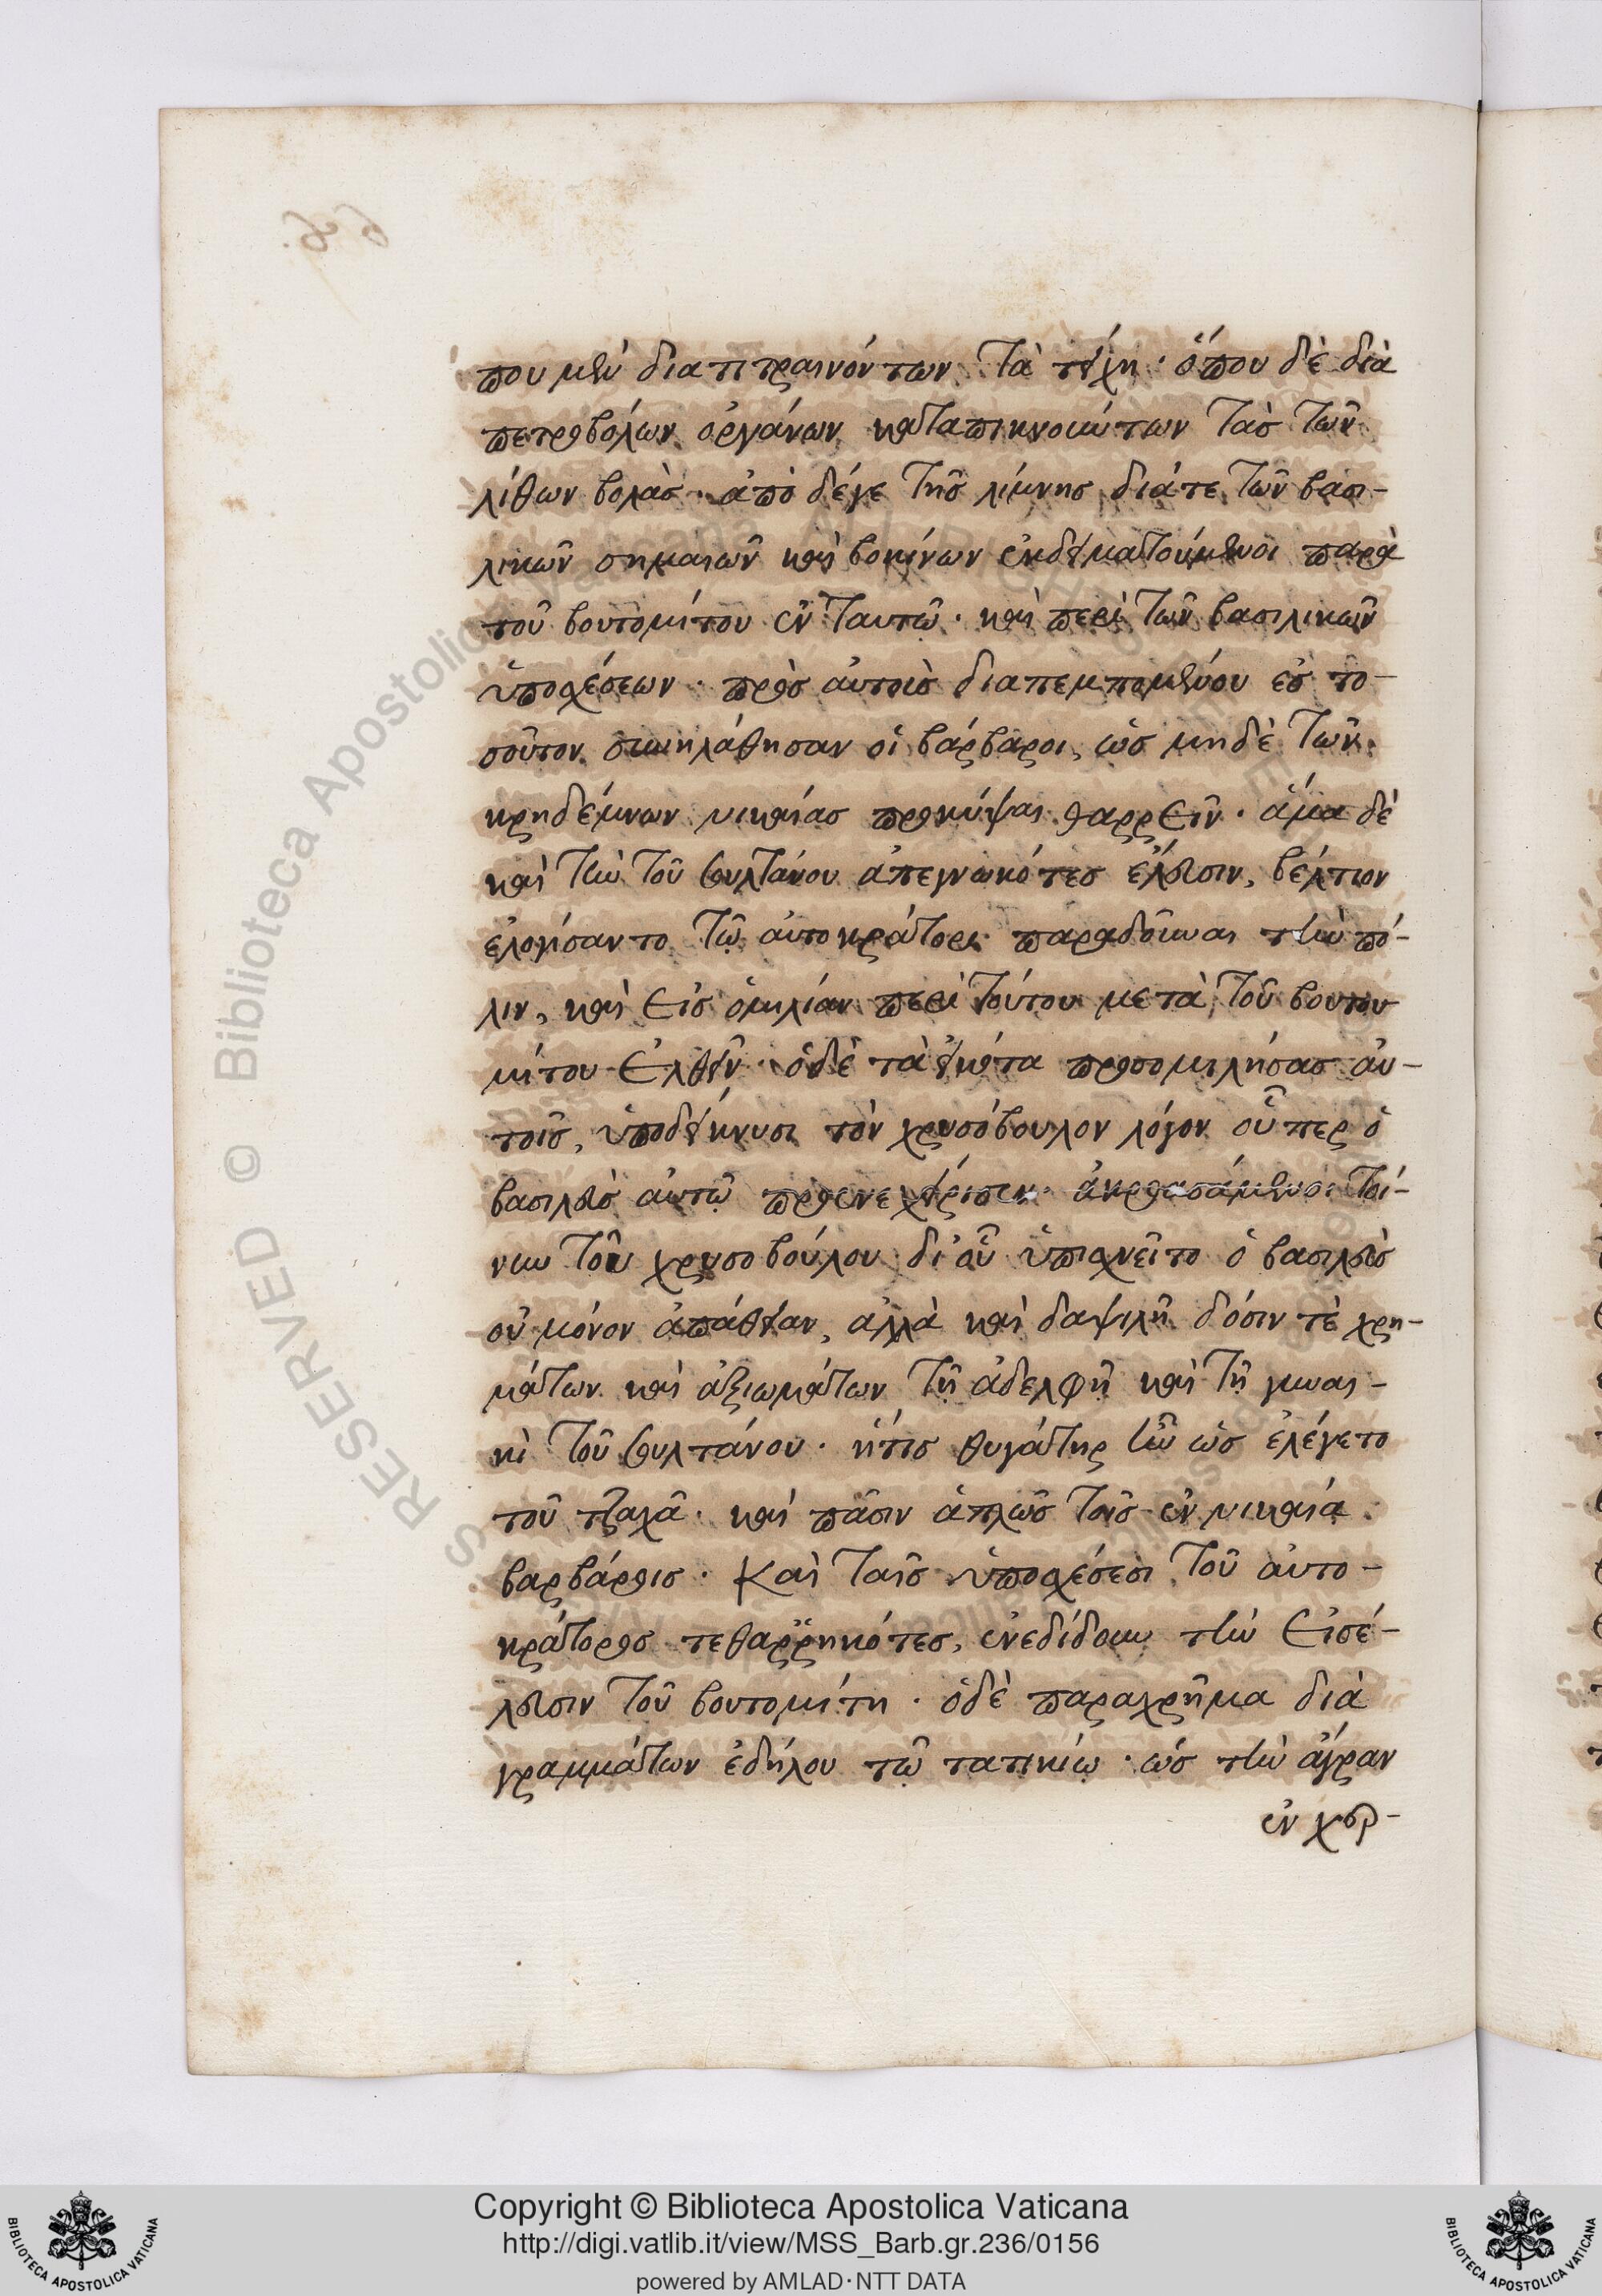 που μὲν διατιτραινόντων τὰ τείχη· ὅπου δὲ διὰ
πετροβόλων ὀργάνων καταπυκνούντων τὰσ τῶν
λίθων βολὰσ· ἀπὸ δέγε τῆσ λίμνησ διάτε τῶν βασι-
λικῶν σημαιῶν καὶ βοκίνων ἐκδειματούμενοι παρὰ
τοῦ βουτομίτου ἐν ταυτῶ· καὶ περὶ τῶν βασιλικῶν
ὑποσχέσεων· πρὸσ αὐτοὺσ διαπεμπομένου ἐσ το-
σοῦτον συνηλάθησαν οἱ βάρβαροι, ὡσ μηδὲ τῶν
κρηδέμνων νικαίασ προκύψαι θαρρεῖν· ἅμα δὲ
καὶ τὴν τοῦ σουλτάνου ἀπεγνωκότεσ ἔλευσιν, βέλτιον
ἐλογίσαντο τῷ αὐτοκράτορι παραδοῦναι τὴν πό-
λιν, καὶ εἰσ ὁμιλίαν περὶ τούτου μετὰ τοῦ βουτου
μίτου ἐλθεῖν· ὁδὲ τὰ εἰκότα προσομιλήσασ αὐ-
τοῖσ, ὑποδείκνυσι τὸν χρυσόβουλον λόγον οὗπερ ὁ
βασιλεὺσ αὐτῷ προενεχείρισεν· ἀκροασάμενοι τοί-
νυν τοῦ χρυσοβούλου δι' οὗ ὑπισχνεῖτο ὁ βασιλεὺσ
οὐ μόνον ἀπάθειαν, ἀλλὰ καὶ δαψιλῆ δόσιν τὲ χρη-
μάτων καὶ ἀξιωμάτων τῇ ἀδελφῇ καὶ τῇ γυναι-
κὶ τοῦ σουλτάνου· ἥτισ θυγάτηρ ἦν ὡσ ἐλέγετο
τοῦ τζαχᾶ· καὶ πᾶσιν ἁπλῶσ τοῖσ ἐν νικαίᾳ
βαρβάροισ· Καὶ ταῖσ ὑποσχέσεσι τοῦ αὐτο-
κράτοροσ τεθαρρηκότεσ, ἐνεδίδουν τὴν εἰσέ-
λευσιν τοῦ βουτομίτη· ὁδὲ παραχρῆμα διὰ
γραμμάτων ἐδήλου τῷ τατικίῳ· ὡσ τὴν ἄγραν
ἐν χερ-